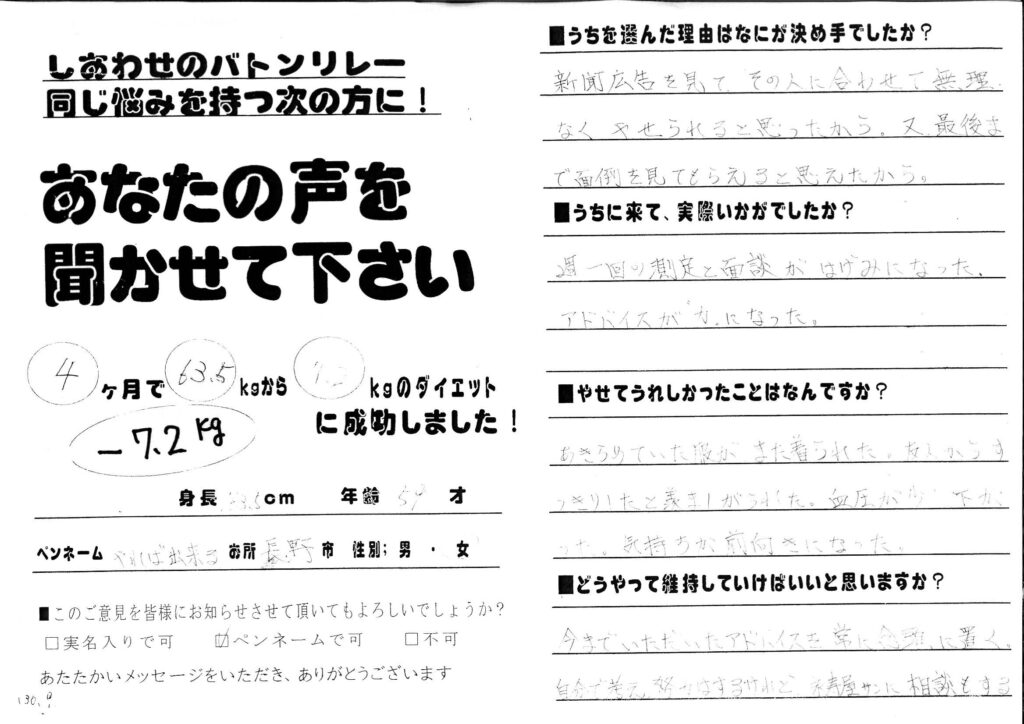 しあわせのバトンリレー
同じ悩みを持つ次の方に！
あなたの声を
聞かせて下さい
4ヶ月で63.5kgから7.2kgのダイエット
に成功しました！
−7.2kg
身長 cm 年齢 59才
ペンネーム やれば出来る お所 長野市 性別；男・女
■このご意見を皆様にお知らせさせて頂いてもよろしいでしょうか？
□実名入りで可 ☑ペンネームで可 □不可
あたたかいメッセージをいただき、ありがとうございます
■うちを選んだ理由はなにが決め手でしたか？
新聞広告を見て、その人に合わせて無理
なく やせられると思ったから。又、最後ま
で面倒を見てもらえると思えたから。
■うちに来て、実際いかがでしたか？
週一回の測定と面談が はげみになった、
アドバイスが"力"になった。
■やせてうれしかったことはなんですか？
あきらめていた服が また着られた。友人からす
っきりしたと羨ましがられた。血圧が 下が
った。気持ちが前向きになった。
■どうやって維持していけばいいと思いますか？
今までいただいたアドバイスを 常に念頭に置く。
自分で考え、努力はするけれど、 サンに 相談もする